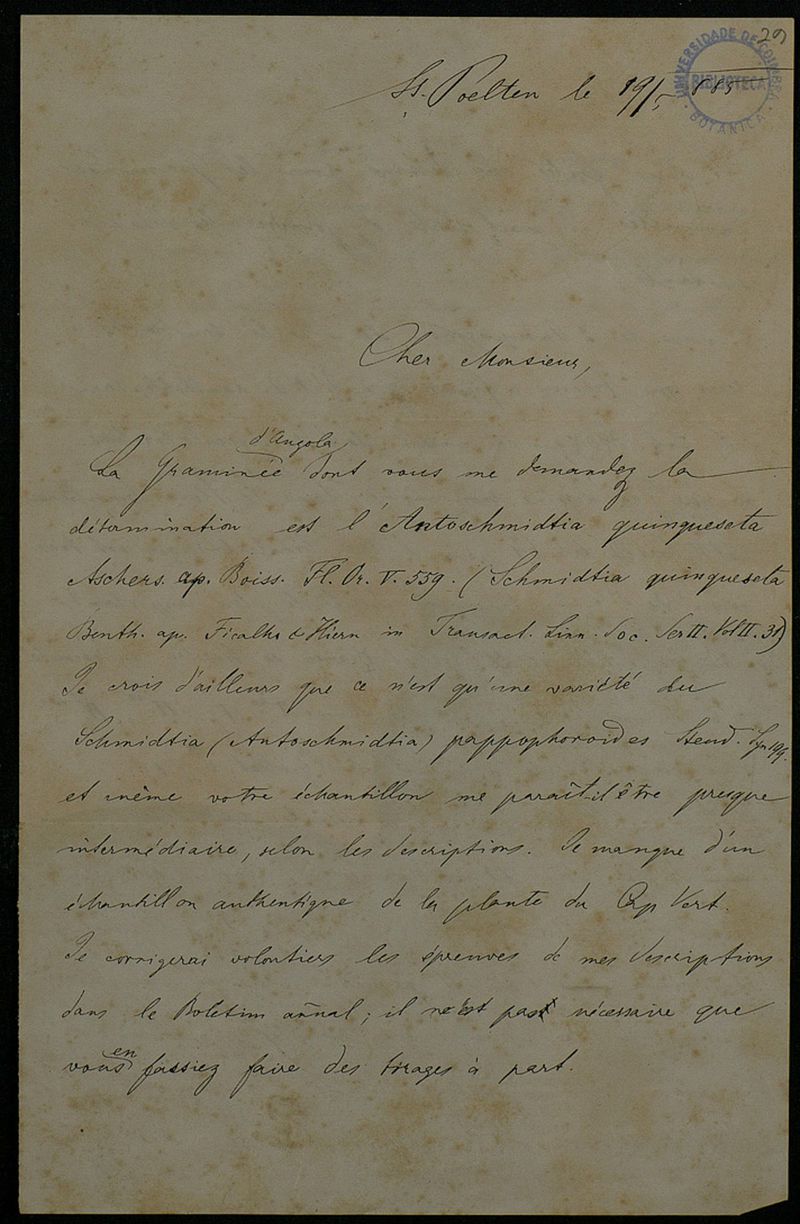 29
UNIVERSIDADE DE COIMBRA
BIBLIOTECA
BOTANICA
St. Poelten le 19/5 885
Cher Monsieur,
d'Angola
La Graminée dont vous me demandez la
détermination est l'Antoschmidtia quinqueseta
Aschers. ap. Boiss. Fl. Or. V. 559. (Schmidtia quinqueseta
Benth. ap. Ficalho & Hiern in Transact. Linn. Soc. Ser II. Vol II. 31)
Je crois d'ailleurs que ce n'est qu'une variété du
Schmidtia (Antoschmidtia) pappophoroides Steud. Syn 199.
et même votre échantillon me paraît-il être presque
intermédiaire, selon les descriptions. Je manque d'un
échantillon authentique de la plante du Cap Vert.
Je corrigerai volontiers les épreuves de mes descriptions
dans le Boletim annal; il n'est pas nécessaire que
vous en fassiez faire des tirages à part.